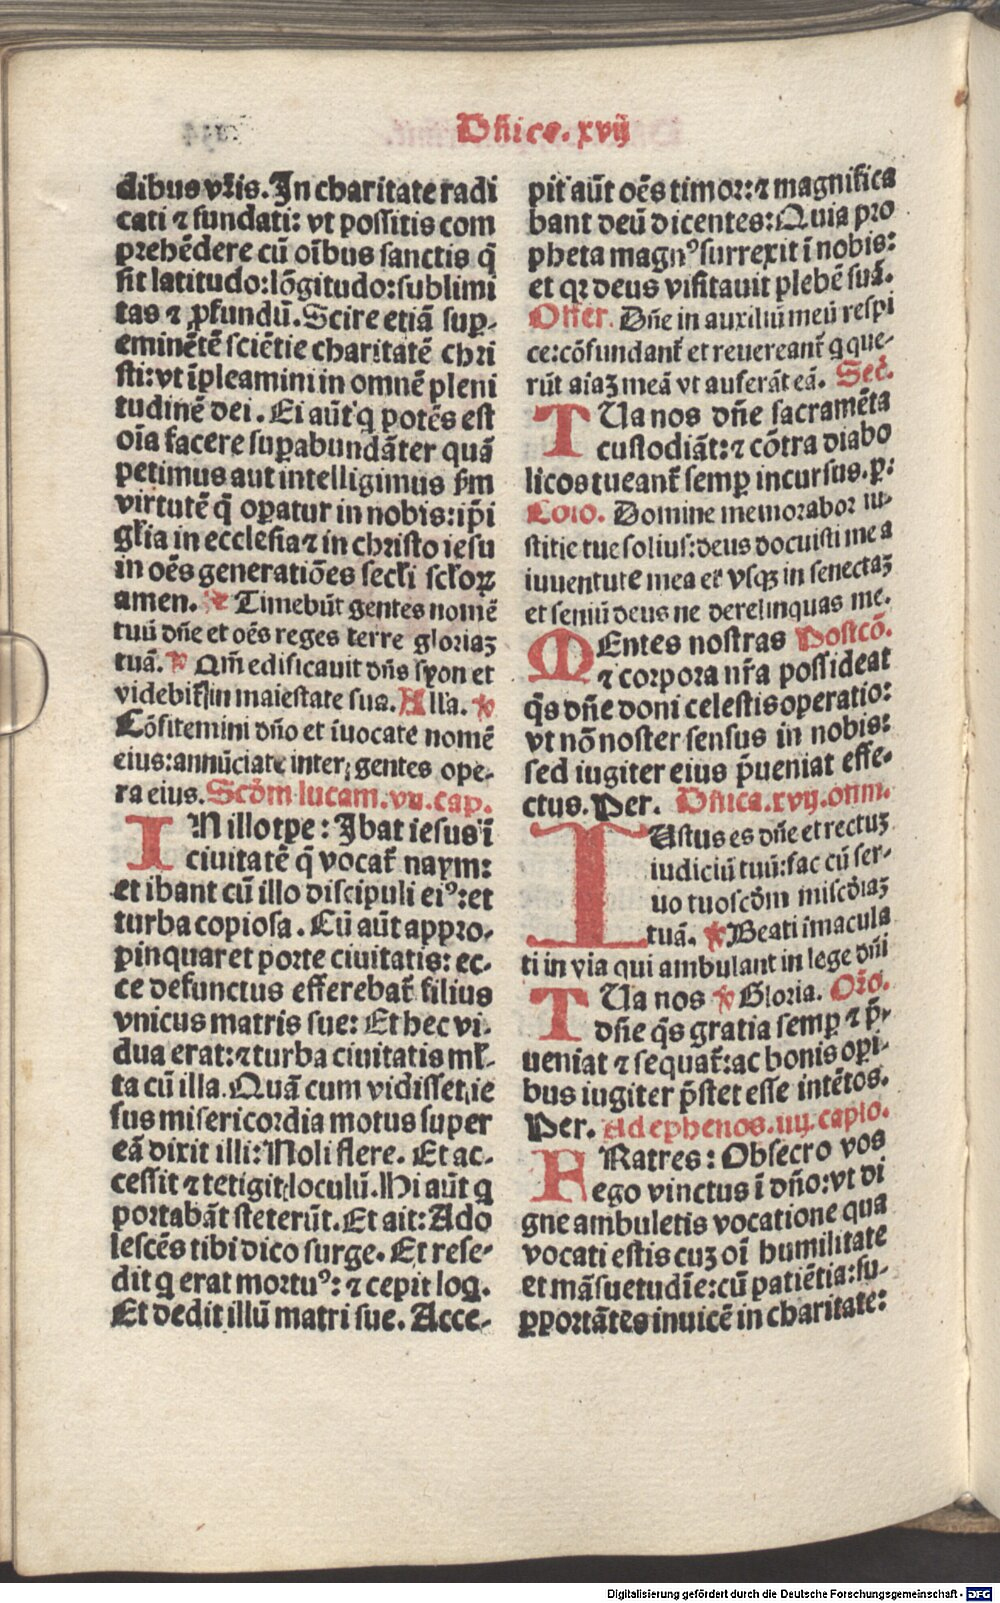 Dn̄ice. xvij
dibus vr̄is. In charitate radi
cati ⁊ fundati: vt possitis com
prehēdere cū oībus sanctis q̄
sit latitudo: lōgitudo: sublimi
tas ⁊ ꝓfundū. Scire etiā suꝑ-
eminētē sciētie charitatē chri
sti: vt īpleamini in omnē pleni
tudinē dei. Ei aūt q̇ potēs est
oīa facere suꝑabundāter quā
petimus aut intelligimus ẜm
virtutē q̄ oꝑatur in nobis: ip̄i
gl̄ia in ecclesia ⁊ in christo iesu
in oēs generatiōes secl̄i scl̄oꝝ
amen. Timebūt gentes nomē
tuū dn̄e et oēs reges terre gloriaꝫ
tuā. ℣ Qm̄ edificauit dn̄s syon et
videbit᷑ in maiestate sua. Alla. ℣
Cōfitemini dn̄o et īuocate nomē
eius: annūciate inter gentes ope-
ra eius. Scd̄m lucam. vij. cap.
IN illo tpe: Ibat iesus ī
ciuitatē q̄ vocat᷑ naym:
et ibant cū illo discipuli eiꝰ: et
turba copiosa. Cū aūt appro-
pinquaret porte ciuitatis: ec-
ce defunctus efferebat᷑ filius
vnicus matris sue: Et hec vi-
dua erat: ⁊ turba ciuitatis ml̄-
ta cū illa. Quā cum vidisset ie
sus misericordia motus super
eā dixit illi: Noli flere. Et ac-
cessit ⁊ tetigit loculū. Hi aūt q̇
portabāt steterūt. Et ait: Ado
lescēs tibi dico surge. Et rese-
dit q̇ erat mortuꝰ: ⁊ cepit loq̇.
Et dedit illū matri sue. Acce-
pit aūt oēs timor: ⁊ magnifica
bant deū dicentes: Quia pro
pheta magnꝰ surrexit ī nobis:
et qꝛ deus visitauit plebē suā.
Offer. Dn̄e in auxiliū meū respi
ce: cōfundant᷑ et reuereant᷑ q̇ que-
rūt aiaꝫ meā vt auferāt eā. Secˀ.
TUa nos dn̄e sacramēta
custodiāt: ⁊ cōtra diabo
licos tueant᷑ semꝑ incursus. ꝑ:
Coīo. Domine memorabor iu-
stitie tue solius: deus docuisti me a
iuuentute mea et vsqꝫ in senectaꝫ
et seniū deus ne derelinquas me.
MEntes nostras Postcō.
⁊ corpora nr̄a possideat
q̄s dn̄e doni celestis operatio:
vt nō noster sensus in nobis:
sed iugiter eius p̄ueniat effe-
ctus. Per. Dn̄ica. xvij. offm̄.
IUstus es dn̄e et rectuꝫ
iudiciū tuū: fac cū ser-
uo tuo scd̄m misc̄diaꝫ
tuā. Beati īmacula
ti in via qui ambulant in lege dn̄i
TUa nos ℣ Gloria. Or̄o.
dn̄e q̄s gratia semꝑ ⁊ p̄-
ueniat ⁊ sequat᷑: ac bonis opi-
bus iugiter p̄stet esse intētos.
Per. Ad ephenos. iiij. capło.
FRatres: Obsecro vos
ego vinctus ī dn̄o: vt di
gne ambuletis vocatione qua
vocati estis cuꝫ oī humilitate
et māsuetudīe: cū patiētia: su-
ꝑportātes inuicē in charitate:
Digitalisierung gefördert durch die Deutsche Forschungsgemeinschaft - DFG